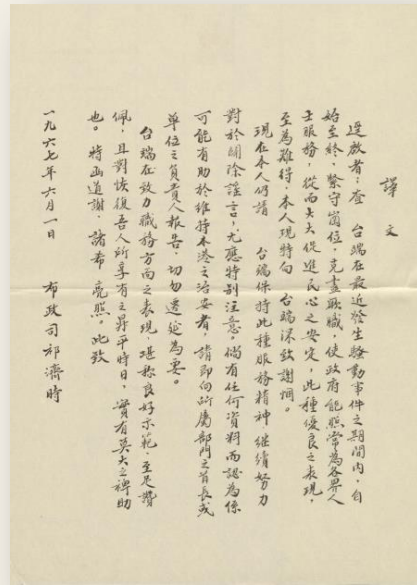 譯文
逕啟者：查 台端在最近發生騷動事件之期間內，自
始至終，緊守崗位，克盡厥職，使政府能照常為各界人
士服務，從而大大促進民心之安定，此種優良之表現，
至為難得。本人現特向 台端深致謝悃。
現在本人仍請 台端保持此種服務精神繼續努力
對於闢除謠言，尤應特別注意。倘有任何資料而認為係
可能有助於維持本港之治安者，請即向所屬部門之首長或
單位之負責人報告，切勿遷延為要。
台端在效力職務方面之表現，堪稱良好示範，至足贊
佩，且對恢復吾人所享有之昇平時日，實有莫大之裨助
也。特函道謝，諸希 亮照。此致
布政司祁濟時
一九六七年六月一日